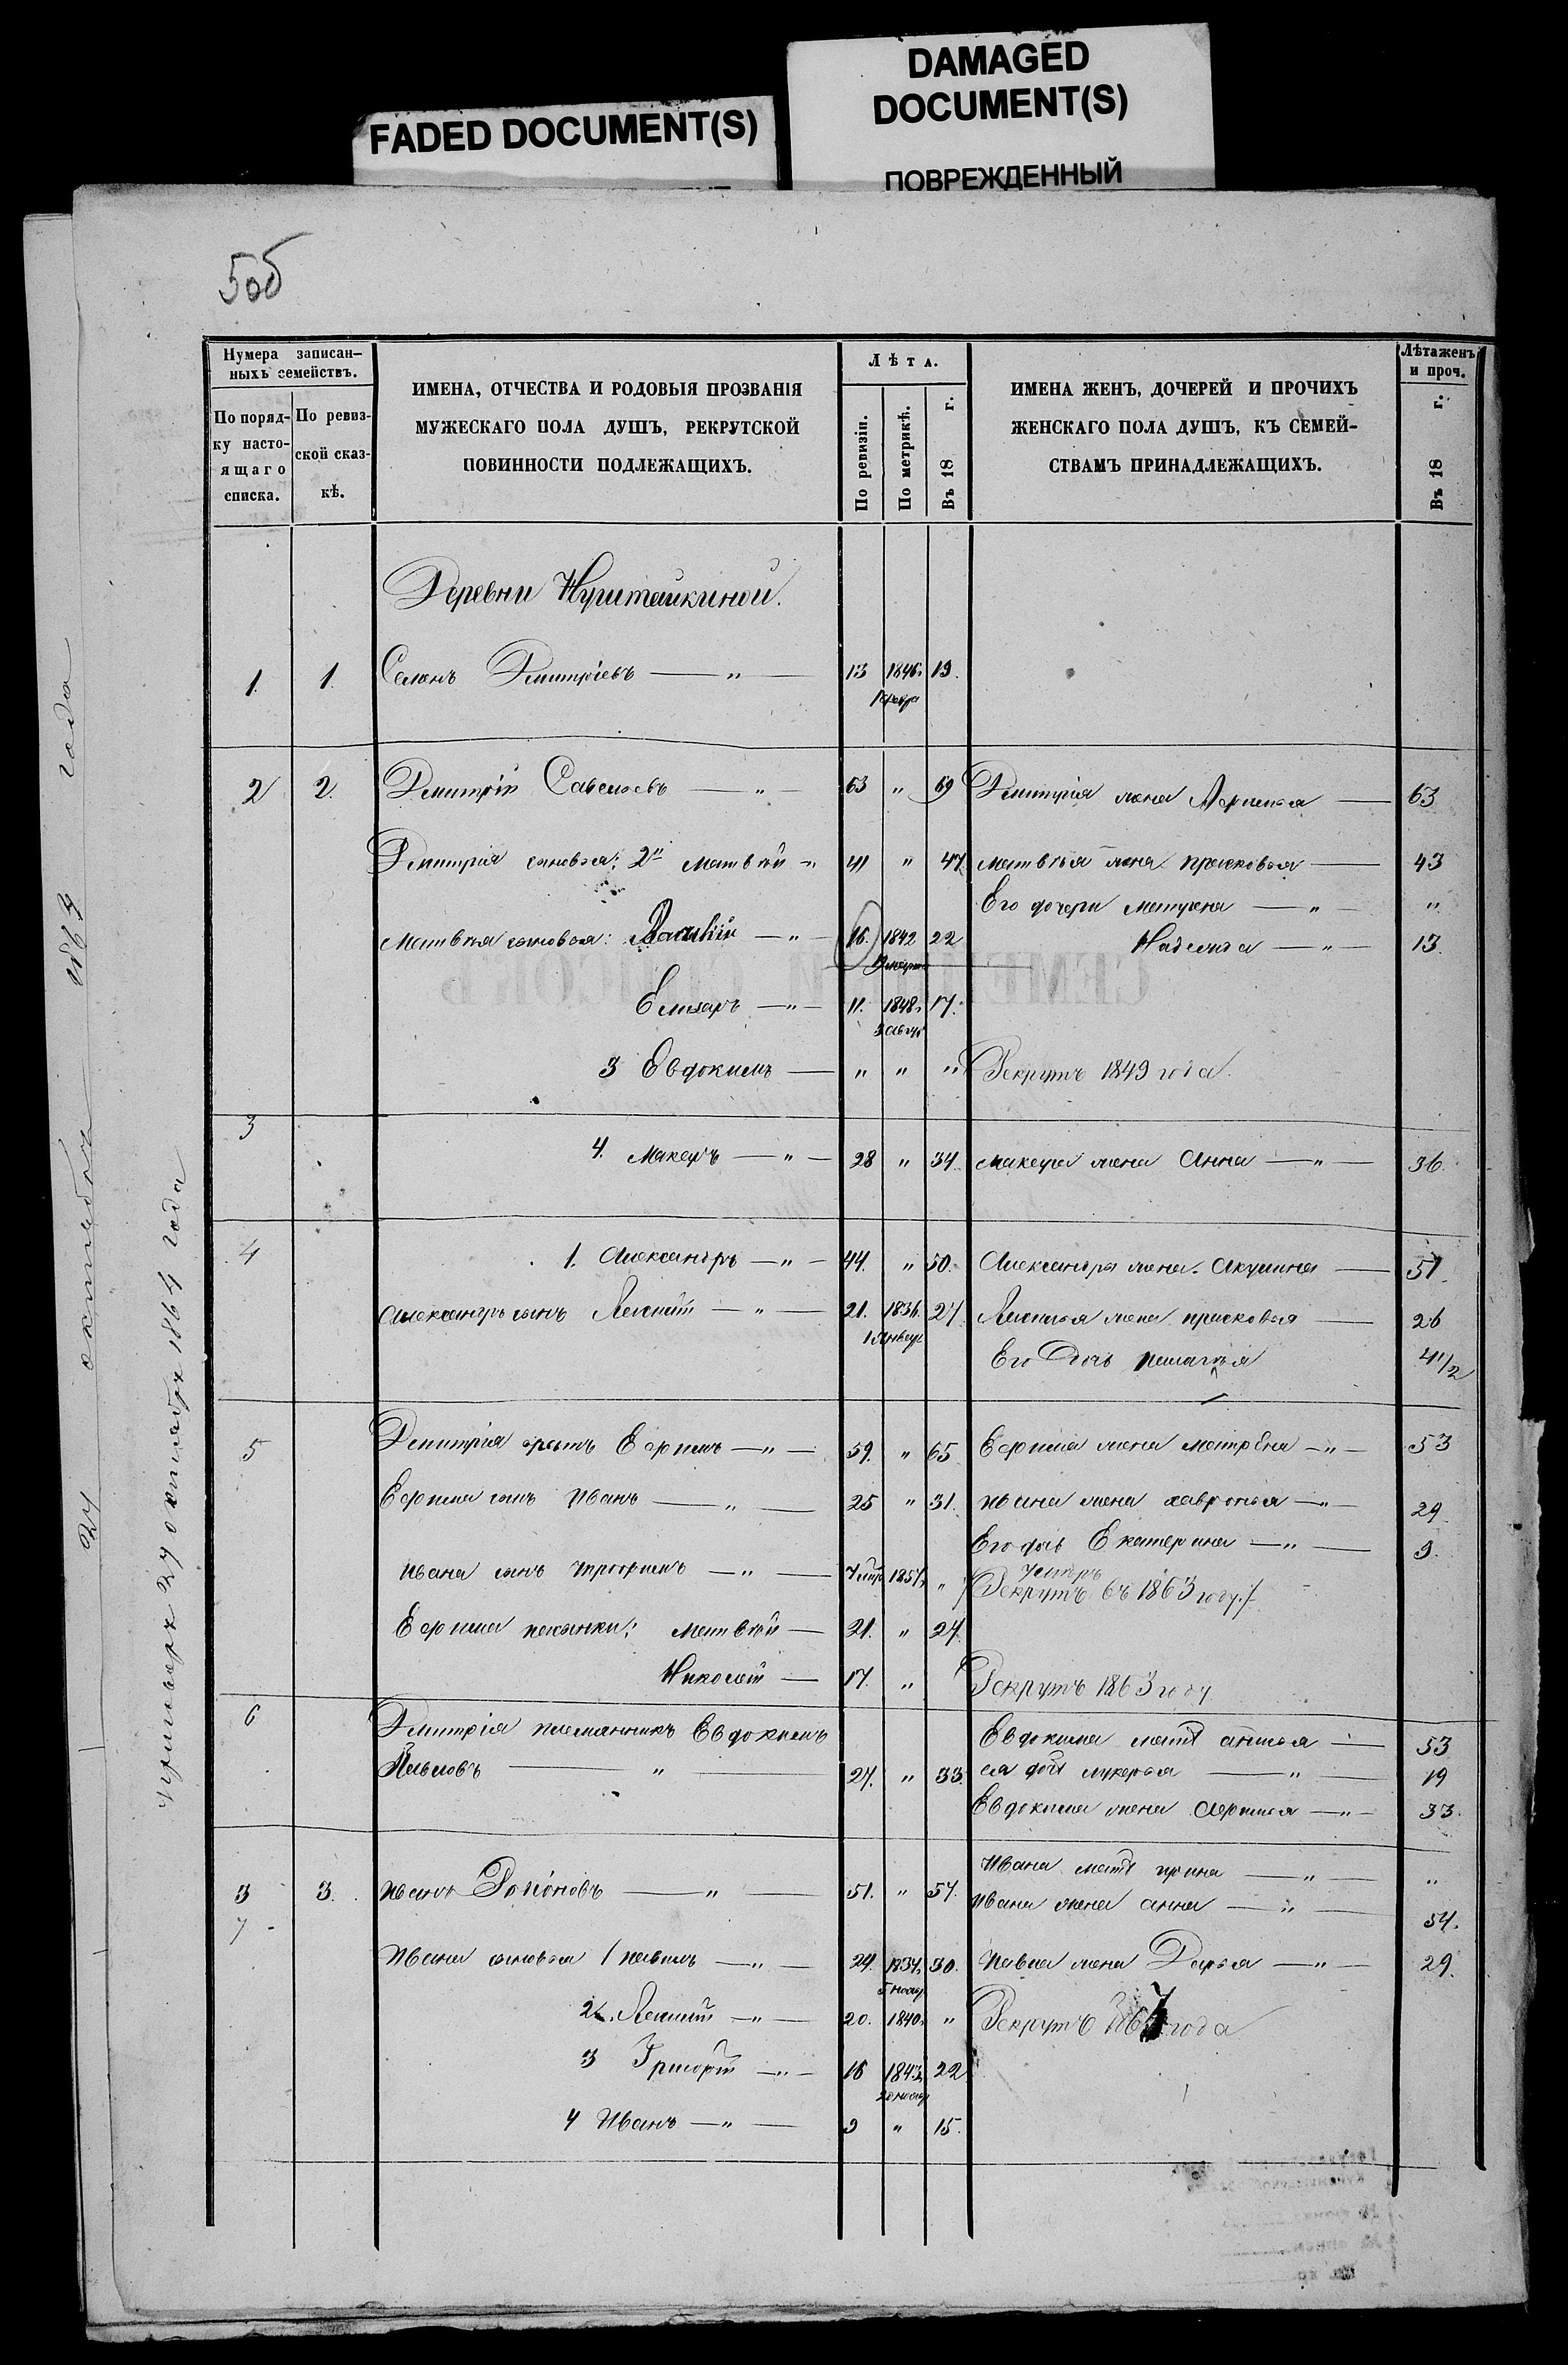 FADED DOCUMENT(S)
DAMAGED
DOCUMENT(S)
ПОВРЕЖДЕННЫЙ
5об
Нумера записан-
ныхъ семействъ.
По поряд-
ку насто-
ящаго
списка.
По ревиз-
ской сказ-
кѣ.
ИМЕНА, ОТЧЕСТВА И РОДОВЫЯ ПРОЗВАНІЯ
МУЖЕСКАГО ПОЛА ДУШЪ, РЕКРУТСКОЙ
ПОВИННОСТИ ПОДЛЕЖАЩИХЪ.
Лѣта.
По ревизіи.
По метрикѣ.
Въ 18 г.
ИМЕНА ЖЕНЪ, ДОЧЕРЕЙ И ПРОЧИХЪ
ЖЕНСКАГО ПОЛА ДУШЪ, КЪ СЕМЕЙ-
СТВАМЪ ПРИНАДЛЕЖАЩИХЪ.
Лѣта женъ
и проч.
Въ 18 г.
Деревни
1. 1. Дмитріевъ — " — 13 1846 19.
2 2. Дмитрій Савельевъ — " — 63 " 69 Дмитрія жена — 63
Дмитрія сыновья: 2й Матвѣй " 41 " 47 Матвѣя жена Прасковья — 43
Его дочери Матрена — " — "
Матвѣя сыновья: — " — 16. 1842 22 Надежда — " — 13.
Елизаръ — " — 11. 1848 17.
3 Евдокимъ — " " " Рекрутъ 1849 года.
3
4. Макаръ — " — 28 " 34. Макара жена Анна — " — 36.
4
1. Александръ — " — 44. " 50. Александра жена Акулина — 51.
Александра сынъ — " — 21. 1836 27 жена Прасковья — 26
января
Его дочь Пелагѣя 4 1/2
5 Дмитрія братъ Ефимъ — " — 59. " 65 Ефима жена Матрена — " — 53
Ефима сынъ Иванъ — " — 25 " 31. Ивана жена Хавронья — " — 29.
Его дочь Екатерина — " — 9.
Ивана сынъ Трофимъ — " — 1857 "
Рекрутъ въ 1863 году
Ефима пасынки: Матвѣй — 21. " 27
Николай — 17. " Рекрутъ 1863 году
6 Дмитрія племянникъ Евдокимъ
— " — 27. " 33.
Евдокима мать — 53
ея дочь Лукерья — " — 19
Евдокима жена — " — 33.
3 3. Иванъ — " — 51. " 57.
7
Ивана мать Ирина — " — "
Ивана жена Анна — " — 54.
Ивана сыновья 1 Павелъ — " — 24. 1834 30. Павла жена Дарья — " — 29.
5 нояб
2. — " — 20. 1840 " Рекрутъ года
3 Григорій — " — 16 1843 22
4 Иванъ — " — 9 " 15.
24 октября года
27 октября 1864 года